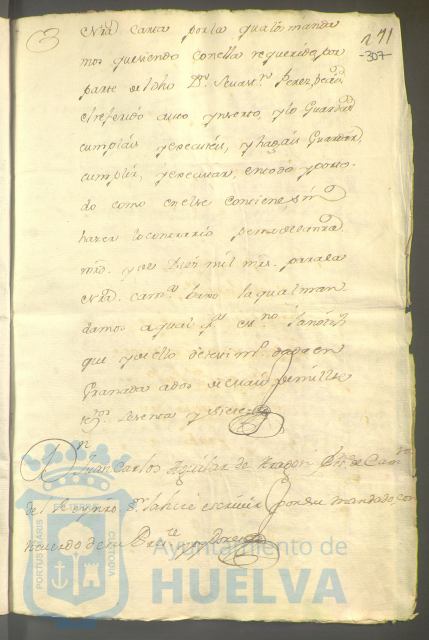 271
-307-
Nrâ carta por la qual os manda
mos que siendo con ella requeridos por
parte del dho Dn. Sevastn. Perez, veais
el referido auto ynserto, y lo Guardeis
cumplais y executeis, y hagais Guardar,
cumplir, y executar, en todo y por to
do como en el se contiene sin
hazer lo contrario pena de la nrâ
mrd. y de Diez mil mrs. para la
nrâ. camâ. bajo la qual man
damos a qual qr. esno. la notifi
que y de ello de testimo. dada en
Granada a dos de Maio de mill se
tezos. sesenta y siete
Dn Juan Carlos Aguilar de Aragon Sno. de Camâ
del Rey nro Sr. la hice escrivir por su mandado, con
Acuerdo de su Presite. y oydores
PORTUS MARIS
CUSTODIA
Ayuntamiento de
HUELVA